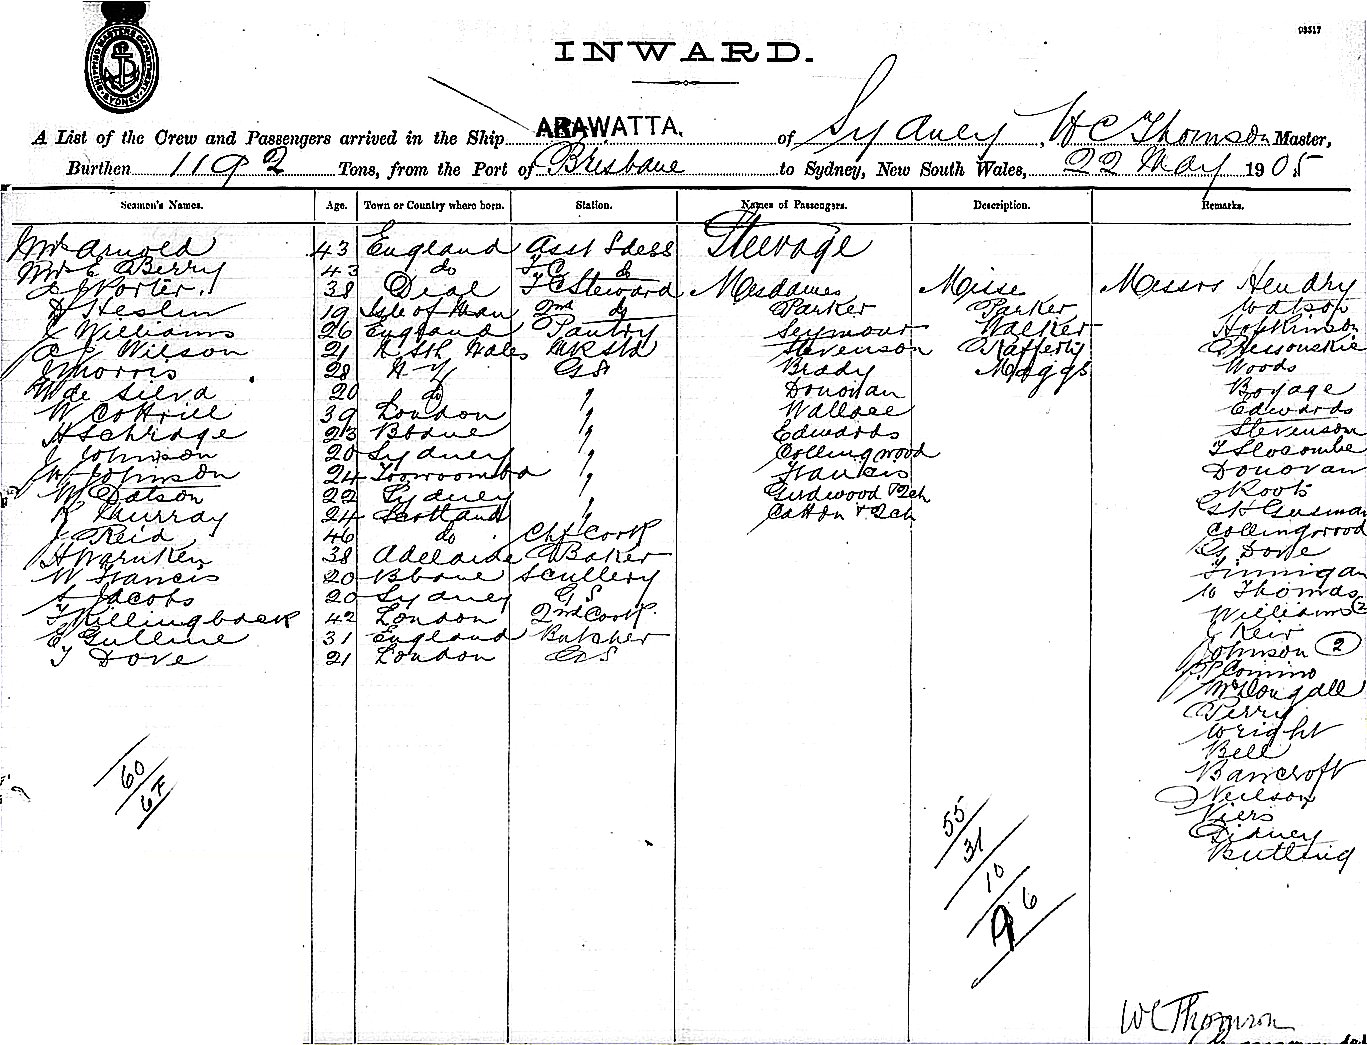 03517
INWARD.
A List of the Crew and Passengers arrived in the Ship ARAWATTA, of Sydney, W C Thomson Master,
Burthen 1192 Tons, from the Port of Brisbane to Sydney, New South Wales, 22 May 1905
Seamen's Names. Age. Town or Country where born. Station. Names of Passengers. Description. Remarks.
Mrs Arnold 43 England Asst Sdess Steerage
Mrs E Berry 43 do F C do
Porter 38 Deal F C Steward Mesdames Misse Messrs Hendry
Heslin 19 Isle of Man 2nd do Parker Parker Watson
J Williams 26 England Pantry Seymour Walker Hopkinson
Wilson 21 N Sth Wales Stevenson Rafferty
J Morris 28 N Y G S Brady Maggs Woods
M de Silva 20 do " Donovan Boyage
W Cottrill 39 London " Wallace Edwards
H Schrage 23 Bbane " Edwards Stevenson
J Johnson 20 Sydney " Collingwood F Slocombe
W Johnson 24 Toowoomba " Francis Donovan
W Datson 22 Sydney " Girdwood & 2ch Roots
R Murray 24 Scotland " Catton & 2ch
J Reid 46 do Chf Cook Collingwood
H Warnken 38 Adelaide Baker G. Dove
W Francis 20 Bbane Scullery Finnigan
S Jacobs 20 Sydney G S W Thomas
F Killingback 42 London 2nd Cook Williams (2
E Gulline 31 England Butcher J Keir
T Dove 21 London G S Johnson 2
P Comino
McDougall
Perry
Wright
Bell
Bancroft
Neilson
Viers
Sidney
Butling
60
64
55
31
10
96
W C Thomson